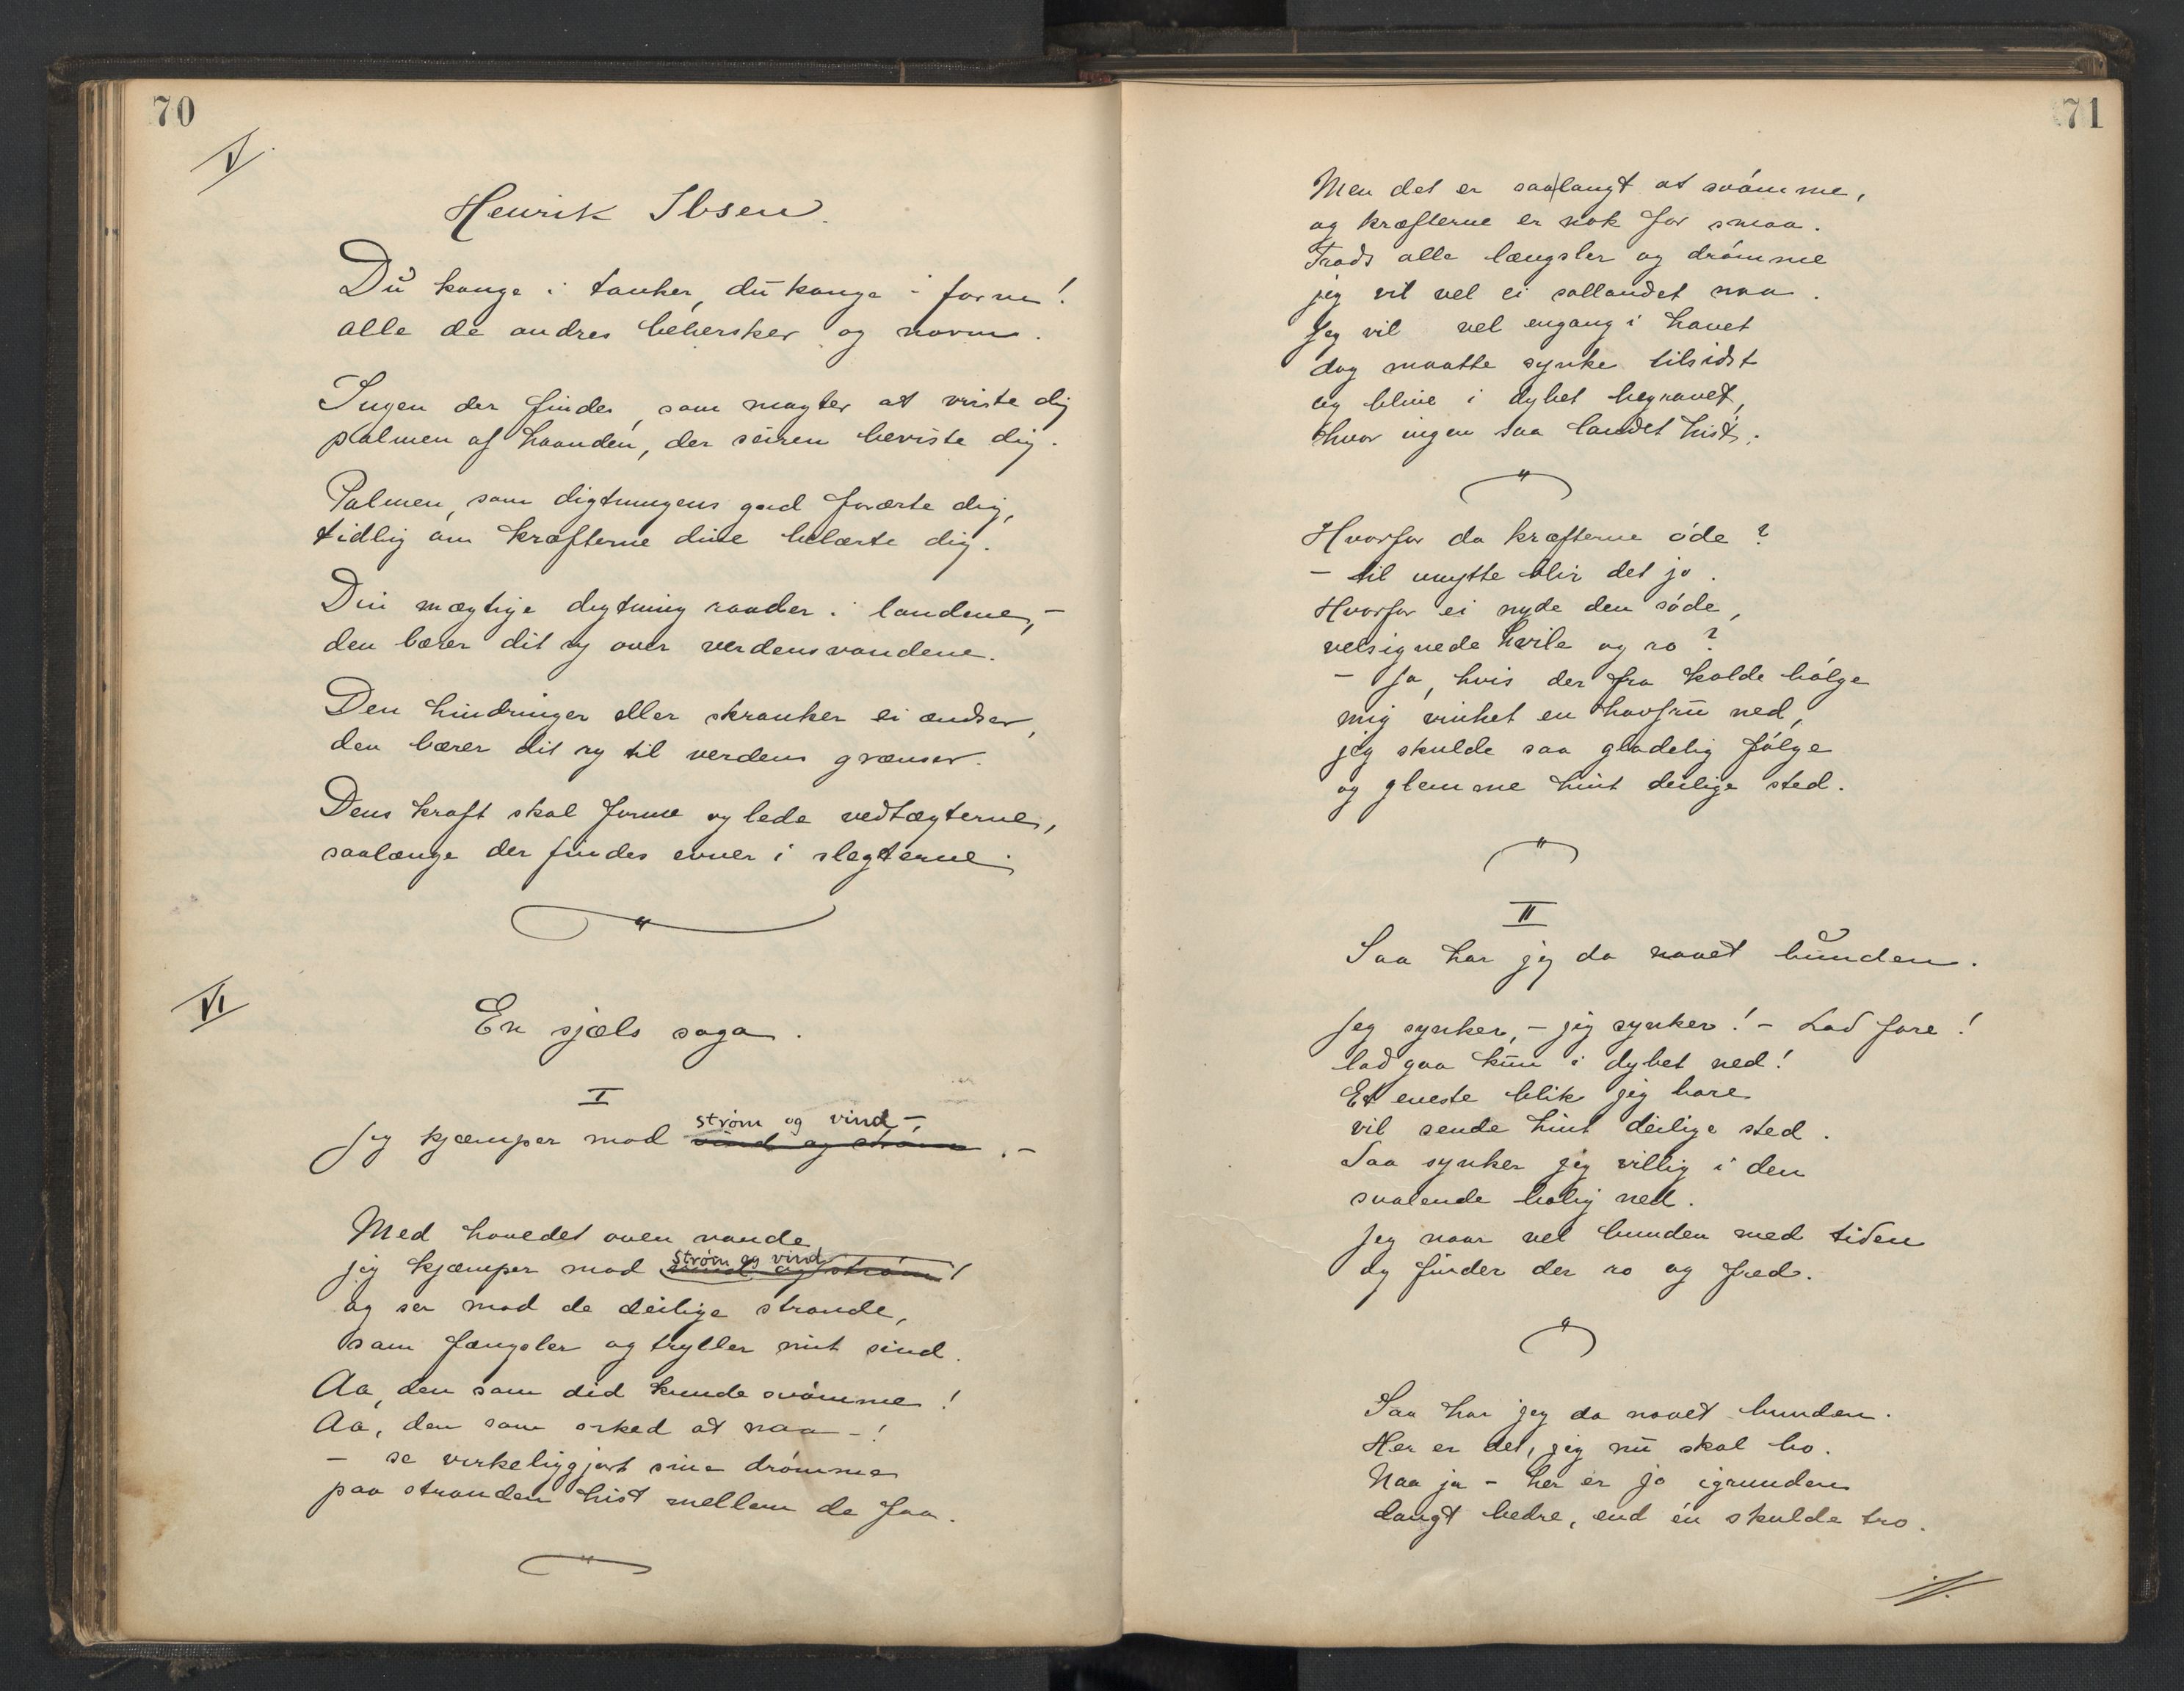 70
V
Henrik Ibsen.
Du konge i tanker, du konge i form!
alle de andres behersker og norm.
Ingen der findes, som magter at vriste dig
palmen af haanden, der seiren beviste dig.
Palmen, som digtningens gud forærte dig,
tidlig om kræfterne dine belærte dig.
Din mægtige digtning raader i landene, –
den bærer dit ry over verdensvandene.
Den hindringer eller skranker ei ændser,
den bærer dit ry til verdens grænser.
Dens kraft skal forme og lede vedtægterne,
saalænge der findes evner i slægterne.
VI
En sjæls saga.
I
strøm og vind –
Jeg kjæmper mod vind og strøm . –
Med hovedet oven vande
strøm og vind
jeg kjæmper mod vind og strøm!
og ser mod de deilige strande,
som fængsler og tryller mit sind.
Aa, den som did kunde svømme!
Aa, den som orked at naa –!
– se virkeliggjort sine drømme
paa stranden hist mellem de faa.
71
Men det er saa|langt at svømme,
og kræfterne er nok for smaa.
Trods alle længsler og drømme
jeg vil vel ei sollandet naa.
Jeg vil vel engang i havet
dog maatte synke tilsidst
og blive i dybet begravet,
hvor ingen saa landet hist.
Hvorfor da kræfterne øde?
– til unytte blir det jo.
Hvorfor ei nyde den søde,
velsignede hvile og ro?
– Ja, hvis der fra kolde bølge
mig vinket en havfru ned,
jeg skulde saa gladelig følge
og glemme hint deilige sted.
II
Saa har jeg da naaet bunden.
Jeg synker, – jeg synker! – Lad fare!
lad gaa kun i dybet ned!
Et eneste blik jeg bare
vil sende hint deilige sted.
Saa synker jeg villig i den
svalende bølg ned.
Jeg naar vel bunden med tiden
og finder der ro og fred.
Saa har jeg da naaet bunden.
Her er det, jeg nu skal bo.
Naa ja – her er jo igrunden
langt bedre, end én skulde tro.